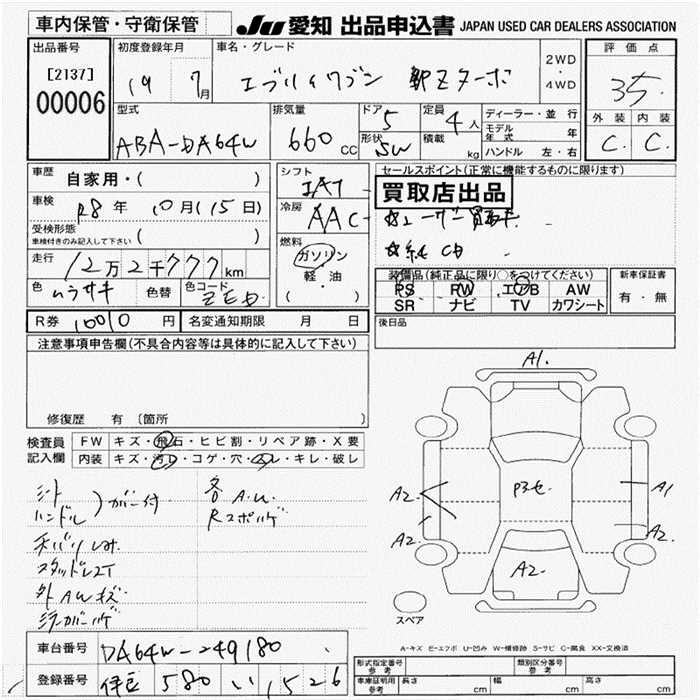 車内保管・守衛保管
JU 愛知 出品申込書 JAPAN USED CAR DEALERS ASSOCIATION
出品番号
[2137]
00006
初度登録年月
19 7月
車名・グレード
エブリイワゴン
2WD・4WD
評価点
3.5
外装 内装
C. C.
型式
ABA-DA64W
排気量
660 CC
ドア 5
形状 SW
定員 4人
積載 kg
ディーラー・並行
モデル年式 年
ハンドル 左・右
車歴 自家用・( )
車検 R8年 10月(15日)
受検形態
車検付きのみ記入して下さい ( )
走行 12万2千777km
色 ムラサキ 色替 色コード
シフト
冷房 AAC
燃料
ガソリン
軽・油
( ・ )
セールスポイント(正常に機能するものに限ります)
買取店出品
☆ユーザー買取車
☆純CD
装備品(純正品に限り○をつけてください)
PS PW エアB AW
SR ナビ TV カワシート
新車保証書
有・無
R券 10010円 名変通知期限 月 日
後日品
注意事項申告欄(不具合内容等は具体的に記入して下さい)
修復歴 有 〔箇所 〕
検査員記入欄
FW キズ・飛石・ヒビ割・リペア跡・X要
内装 キズ・汚れ・コゲ・穴・スレ・キレ・破レ
シート
ハンドル
)ガバー付
各A.U.
スタッドレスT
外AUキズ
A1.
A2
A2.
A1
A2.
A2.
スペア
A-キズ E-エクボ U-凹み W-補修跡 S-サビ C-腐食 XX-交換済
車台番号 DA64W-249180
登録番号 伊豆 580 い 1526
形式指定番号 参考
類別区分番号 参考
車庫証明用 参考 長さ cm 幅 cm 高さ cm